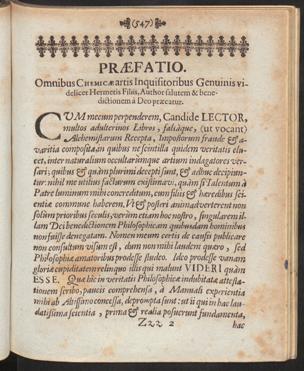 (547)
PRÆFATIO.
Omnibus CHEMICÆ artis Inquisitoribus Genuinis vi-
delicet Hermetis Filiis, Author salutem & bene-
dictionem à Deo præcatur.
CUM mecum perpenderem, Candide LECTOR,
multos adulterinos Libros, falsáque, (ut vocant)
Alchemistarum Recepta, Impostorum fraude & a-
varitia composita, in quibus ne scintilla quidem veritatis eluce-
et, inter naturalium occultarumque artium indagatores versa-
ri; quibus & quàm plurimi decepti sunt, & adhuc decipiun-
tur: nihil me utilius facturum existimavi, quàm si Talentum à
Patre luminum mihi concreditum, cum filiis & hæredibus scien-
tiæ commune haberem, Ut & posteri animadverterent non
solùm prioribus seculis, verùm etiam hoc nostro, singularem il-
lam Dei benedictionem Philosophicam quibusdam hominibus
non fuisse denegatam. Nomen meum certis de causis publicare
non consultum visum est, dum non mihi laudem quæro, sed
Philosophiæ amatoribus prodesse studeo. Ideo prodesse vanam
gloriæ cupiditatem relinquo illis qui malunt VIDERI quàm
ESSE. Quæ hîc in veritatis Philosophicæ indubitatæ attesta-
tionem scribo, paucis comprehensa, à Manuali experientia
mihi ab Altissimo concessa, deprompta sunt: ut ii qui in hac lau-
datissima scientia, prima & realia posuerunt fundamenta,
Zzz 2
hac